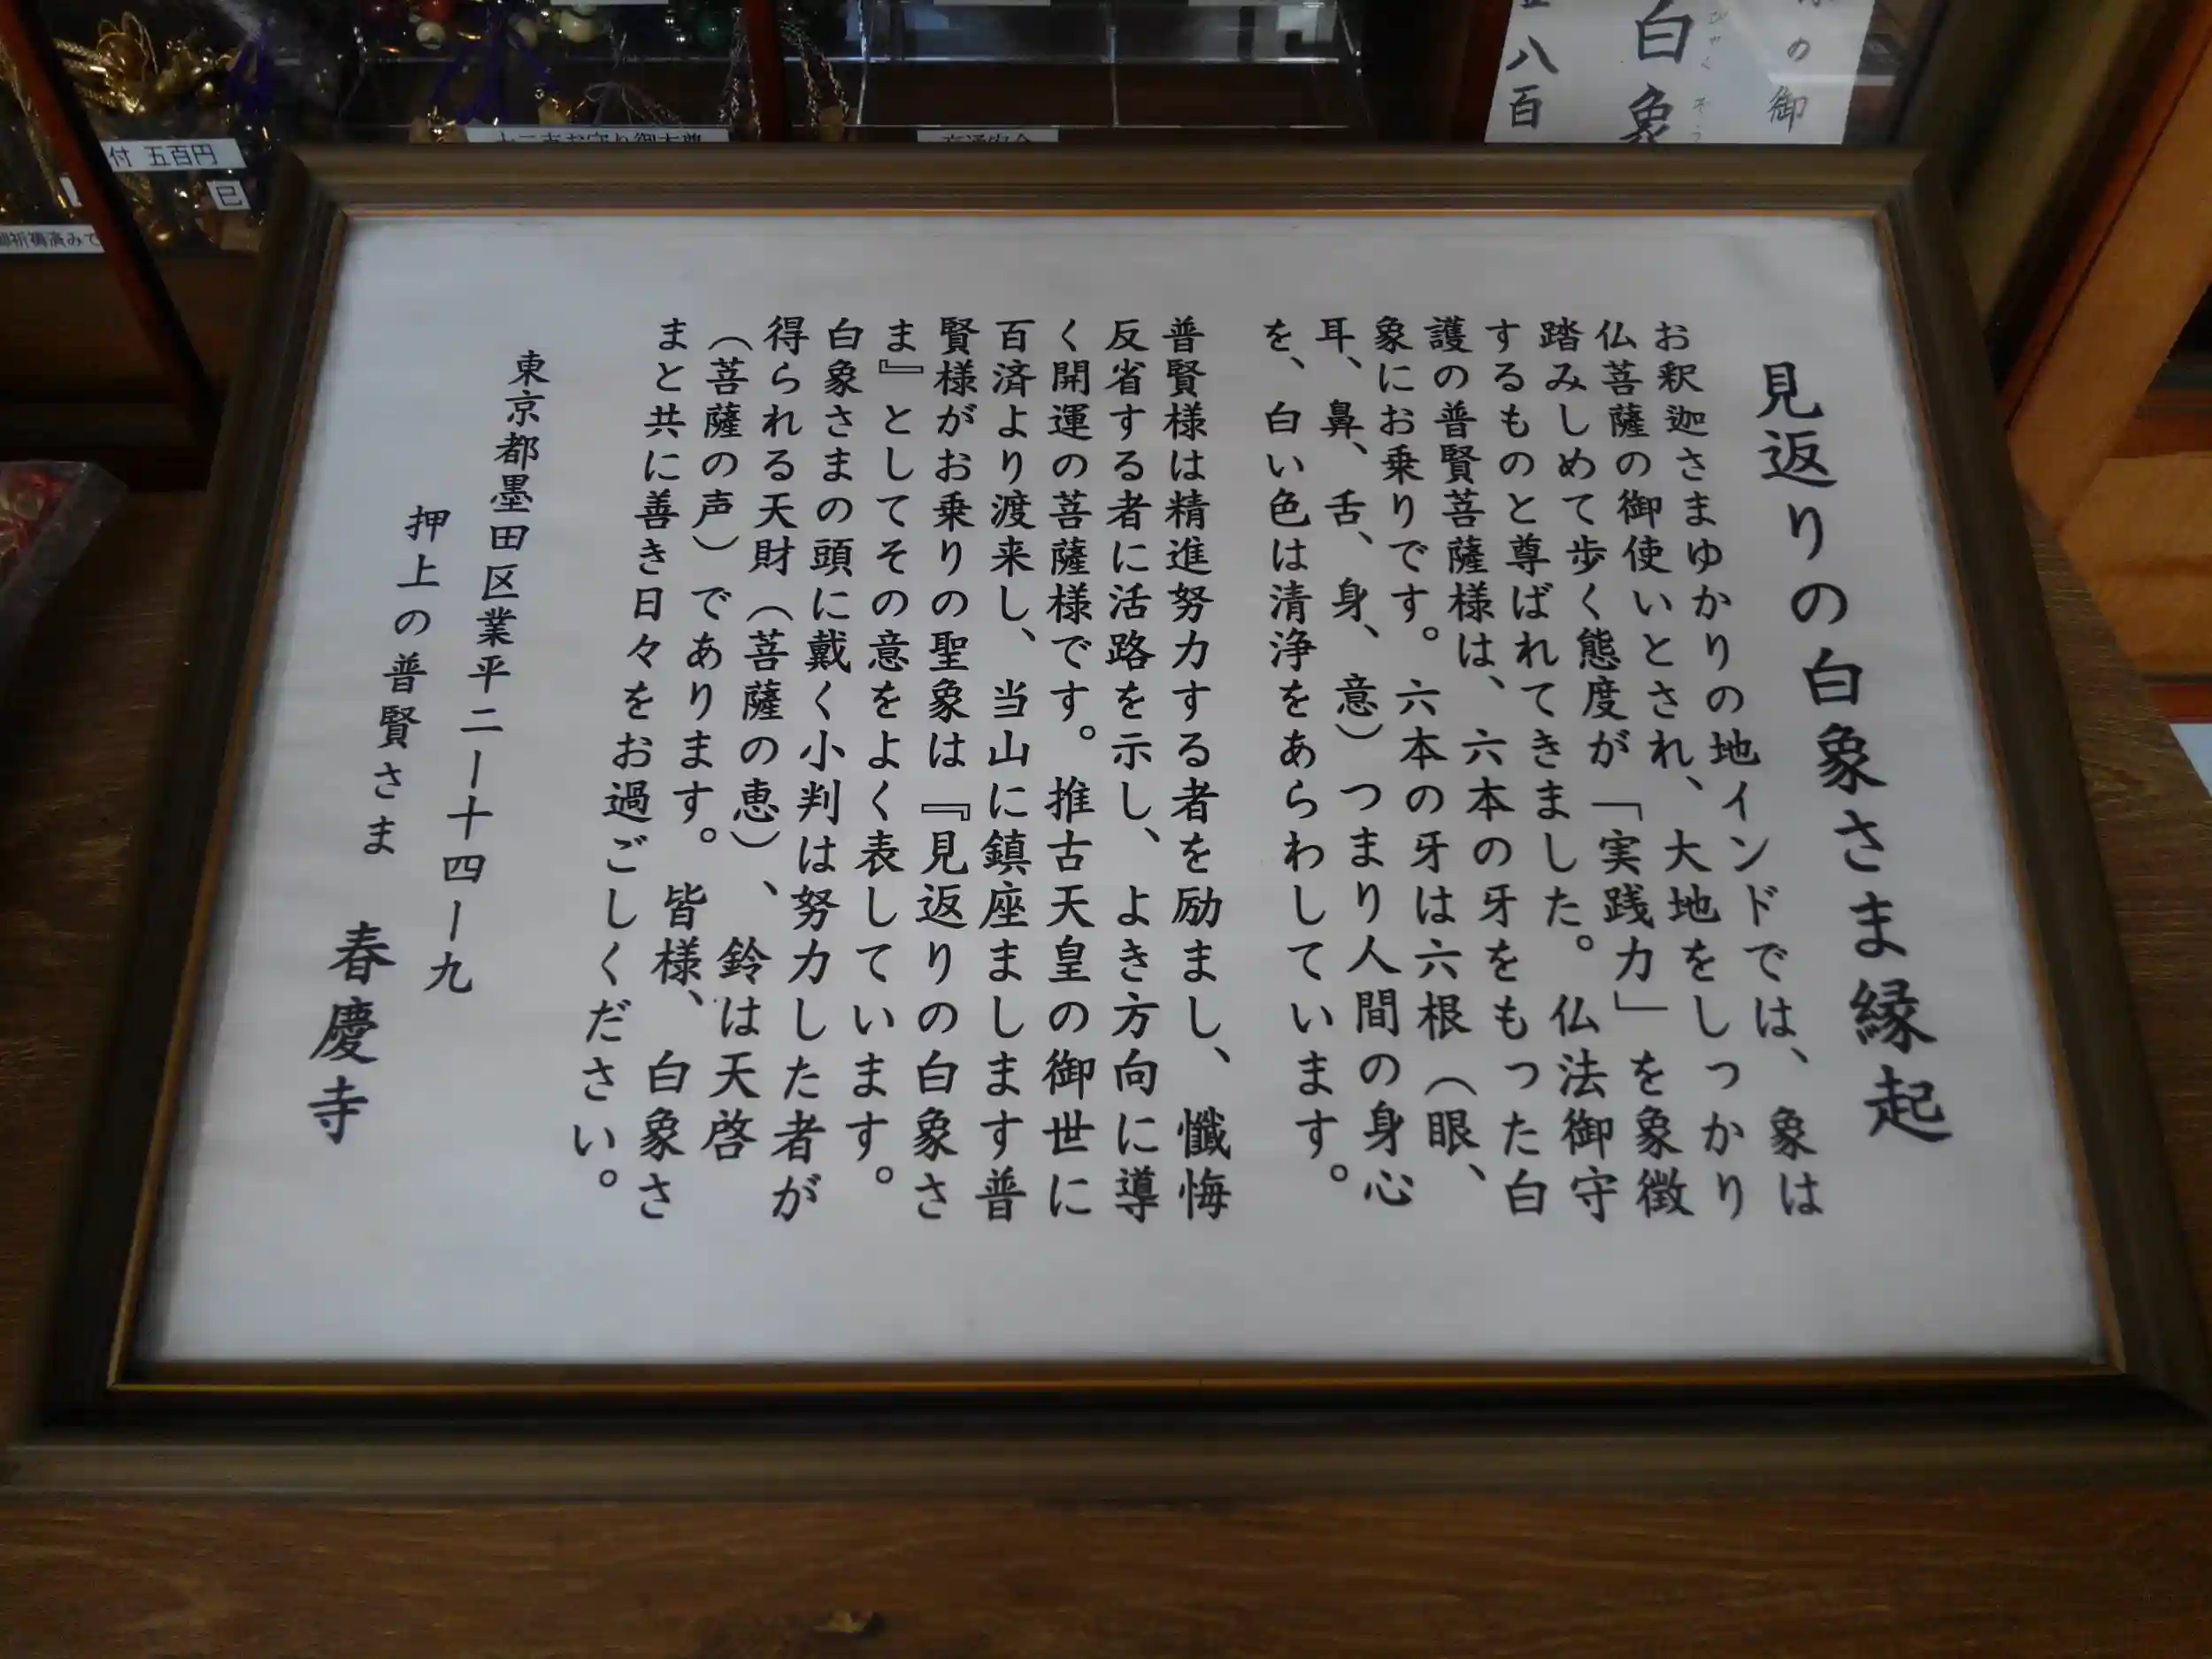 見返りの白象さま縁起
お釈迦さまゆかりの地インドでは、象は
仏菩薩の御使いとされ、大地をしっかり
踏みしめて歩く態度が「実践力」を象徴
するものと尊ばれてきました。仏法御守
護の普賢菩薩様は、六本の牙をもった白
象にお乗りです。六本の牙は六根（眼、
耳、鼻、舌、身、意）つまり人間の身心
を、白い色は清浄をあらわしています。
普賢様は精進努力する者を励まし、懺悔
反省する者に活路を示し、よき方向に導
く開運の菩薩様です。推古天皇の御世に
百済より渡来し、当山に鎮座まします普
賢様がお乗りの聖象は『見返りの白象さ
ま』としてその意をよく表しています。
白象さまの頭に戴く小判は努力した者が
得られる天財（菩薩の恵）、鈴は天啓
（菩薩の声）であります。皆様、白象さ
まと共に善き日々をお過ごしください。
東京都墨田区業平二ー十四ー九
押上の普賢さま 春慶寺
の御
白象
びゃくぞう
八百
付 五百円
巳
祈祷済みで